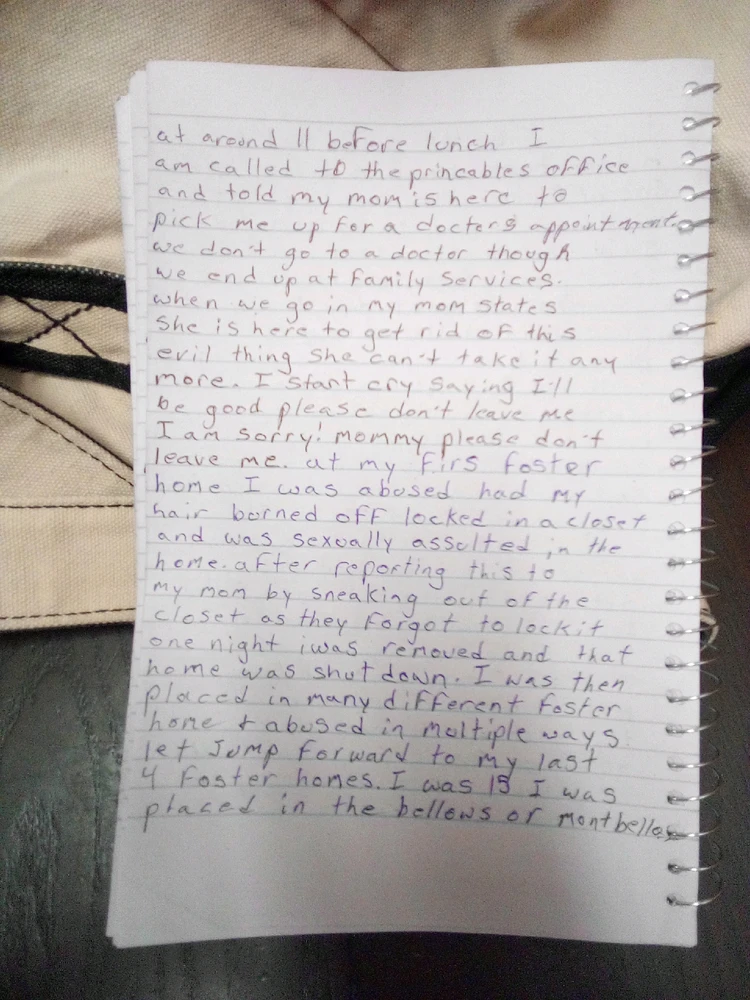 at around 11 before lunch I
am called to the princables office
and told my mom is here to
pick me up for a docters appointment.
we don't go to a doctor though
we end up at Family Services.
when we go in my mom states
she is here to get rid of this
evil thing she can't take it any
more. I start cry saying I'll
be good please don't leave me
I am sorry! mommy please don't
leave me. at my firs foster
home I was abused had my
hair borned off locked in a closet
and was sexually assulted in the
home. after reporting this to
my mom by sneaking out of the
closet as they forgot to lock it
one night i was removed and that
home was shut down. I was then
placed in many different foster
home & abused in multiple ways
let Jump forward to my last
4 foster homes. I was 15 I was
placed in the bellows or montbellos